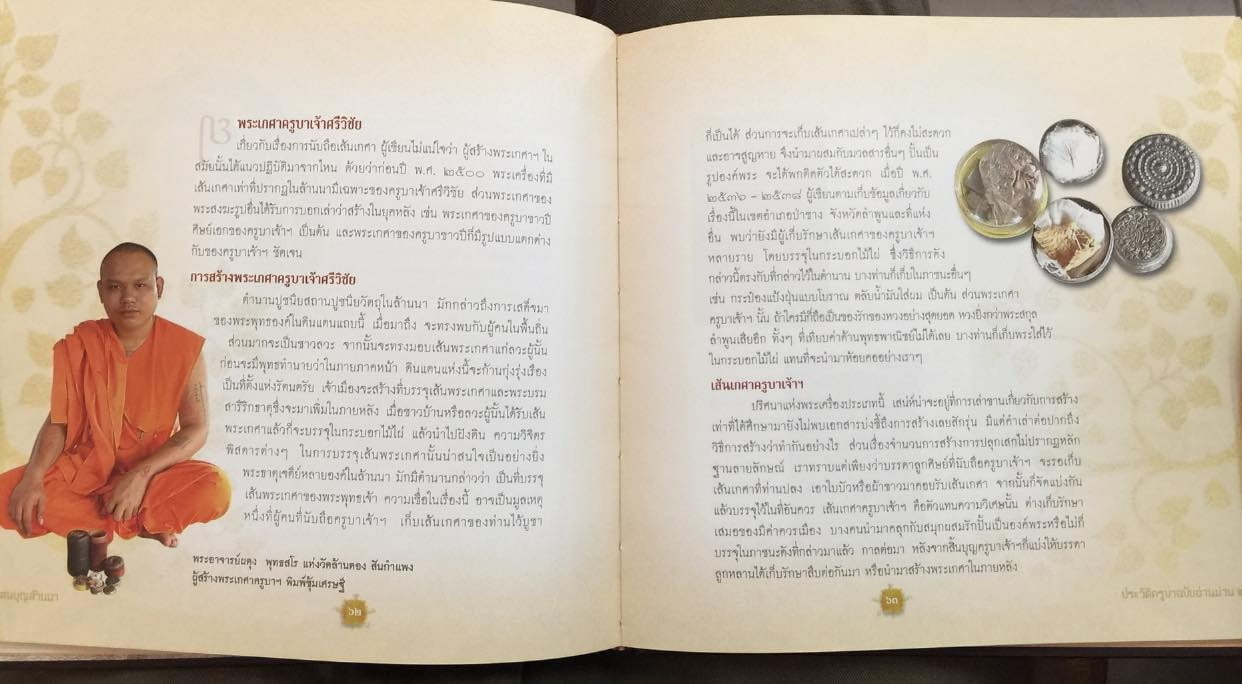 พระเกศาครูบาเจ้าศรีวิชัย
เกี่ยวกับเรื่องการนับถือเส้นเกศา ผู้เขียนไม่แน่ใจว่า ผู้สร้างพระเกศาฯ ใน
สมัยนั้นได้แนวปฏิบัติมาจากไหน ด้วยว่าก่อนปี พ.ศ. ๒๕๐๐ พระเครื่องที่มี
เส้นเกศาเท่าที่ปรากฏในล้านนามีเฉพาะของครูบาเจ้าศรีวิชัย ส่วนพระเกศาของ
พระสงฆะรูปอื่นได้รับการบอกเล่าว่าสร้างในยุคหลัง เช่น พระเกศาของครูบาขาวปี
ศิษย์เอกของครูบาเจ้าฯ เป็นต้น และพระเกศาของครูบาขาวปีที่มีรูปแบบแตกต่าง
กับของครูบาเจ้าฯ ชัดเจน
การสร้างพระเกศาครูบาเจ้าศรีวิชัย
ตำนานปูชนียสถานปูชนียวัตถุในล้านนา มักกล่าวถึงการเสด็จมา
ของพระพุทธองค์ในดินแดนแถบนี้ เมื่อมาถึง จะทรงพบกับผู้คนในพื้นถิ่น
ส่วนมากจะเป็นชาวลวะ จากนั้นจะทรงมอบเส้นพระเกศาแก่ลวะผู้นั้น
ก่อนจะมีพุทธทำนายว่าในภายภาคหน้า ดินแดนแห่งนี้จะก้านกุ่งรุ่งเรือง
เป็นที่ตั้งแห่งรัตนตรัย เจ้าเมืองจะสร้างที่บรรจุเส้นพระเกศาและพระบรม
สารีริกธาตุซึ่งจะมาเพิ่มในภายหลัง เมื่อชาวบ้านหรือลวะผู้นั้นได้รับเส้น
พระเกศาแล้วก็จะบรรจุในกระบอกไม้ไผ่ แล้วนำไปฝังดิน ความวิจิตร
พิสดารต่างๆ ในการบรรจุเส้นพระเกศานั้นน่าสนใจเป็นอย่างยิ่ง
พระธาตุเจดีย์หลายองค์ในล้านนา มักมีตำนานกล่าวว่า เป็นที่บรรจุ
เส้นพระเกศาของพระพุทธเจ้า ความเชื่อในเรื่องนี้ อาจเป็นมูลเหตุ
หนึ่งที่ผู้คนที่นับถือครูบาเจ้าฯ เก็บเส้นเกศาของท่านไว้บูชา
พระอาจารย์ผดุง พุทธสโร แห่งวัดล้านตอง สันกำแพง
ผู้สร้างพระเกศาครูบาฯ พิมพ์ซุ้มเศรษฐี
๖๒
สนบุญล้านนา
ก็เป็นได้ ส่วนการจะเก็บเส้นเกศาเปล่าๆ ไว้ก็คงไม่สะดวก
และอาจสูญหาย จึงนำมาผสมกับมวลสารอื่นๆ ปั้นเป็น
รูปองค์พระ จะได้พกติดตัวได้สะดวก เมื่อปี พ.ศ.
๒๕๓๖ - ๒๕๓๘ ผู้เขียนตามเก็บข้อมูลเกี่ยวกับ
เรื่องนี้ในเขตอำเภอป่าซาง จังหวัดลำพูนและที่แห่ง
อื่น พบว่ายังมีผู้เก็บรักษาเส้นเกศาของครูบาเจ้าฯ
หลายราย โดยบรรจุในกระบอกไม้ไผ่ ซึ่งวิธีการดัง
กล่าวนี้ตรงกับที่กล่าวไว้ในตำนาน บางท่านก็เก็บในภาชนะอื่นๆ
เช่น กระป๋องแป้งฝุ่นแบบโบราณ ตลับน้ำมันใส่ผม เป็นต้น ส่วนพระเกศา
ครูบาเจ้าฯ นั้น ถ้าใครมีก็ถือเป็นของรักของหวงอย่างสุดยอด หวงยิ่งกว่าพระสกุล
ลำพูนเสียอีก ทั้งๆ ที่เทียบค่าด้านพุทธพาณิชย์ไม่ได้เลย บางท่านก็เก็บพระใส่ไว้
ในกระบอกไม้ไผ่ แทนที่จะนำมาห้อยคออย่างเราๆ
เส้นเกศาครูบาเจ้าฯ
ปริศนาแห่งพระเครื่องประเภทนี้ เสน่ห์น่าจะอยู่ที่การเล่าขานเกี่ยวกับการสร้าง
เท่าที่ได้ศึกษามายังไม่พบเอกสารบ่งชี้ถึงการสร้างเลยสักรุ่น มีแต่คำเล่าต่อปากถึง
วิธีการสร้างว่าทำกันอย่างไร ส่วนเรื่องจำนวนการสร้างการปลุกเสกไม่ปรากฏหลัก
ฐานลายลักษณ์ เราทราบแต่เพียงว่าบรรดาลูกศิษย์ที่นับถือครูบาเจ้าฯ จะรอเก็บ
เส้นเกศาที่ท่านปลง เอาใบบัวหรือผ้าขาวมาคอบรับเส้นเกศา จากนั้นก็จัดแบ่งกัน
แล้วบรรจุไว้ในที่อันควร เส้นเกศาครูบาเจ้าฯ คือตัวแทนความวิเศษนั้น ต่างเก็บรักษา
เสมอของมีค่าควรเมือง บางคนนำมาคลุกกับสมุกผสมรักปั้นเป็นองค์พระหรือไม่ก็
บรรจุในภาชนะดังที่กล่าวมาแล้ว กาลต่อมา หลังจากสิ้นบุญครูบาเจ้าฯก็แบ่งให้บรรดา
ลูกหลานได้เก็บรักษาสืบต่อกันมา หรือนำมาสร้างพระเกศาในภายหลัง
๖๓
ประวัติครูบาฉบับอ่านม่วน